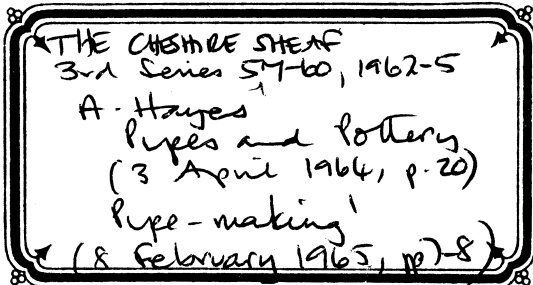 THE CHESHIRE SHEAF
3rd Series 57-60, 1962-5
A. Hayes
Pipes and Pottery
(3 April 1964, p.20)
Pipe-making'
(8 February 1965, pp7-8)